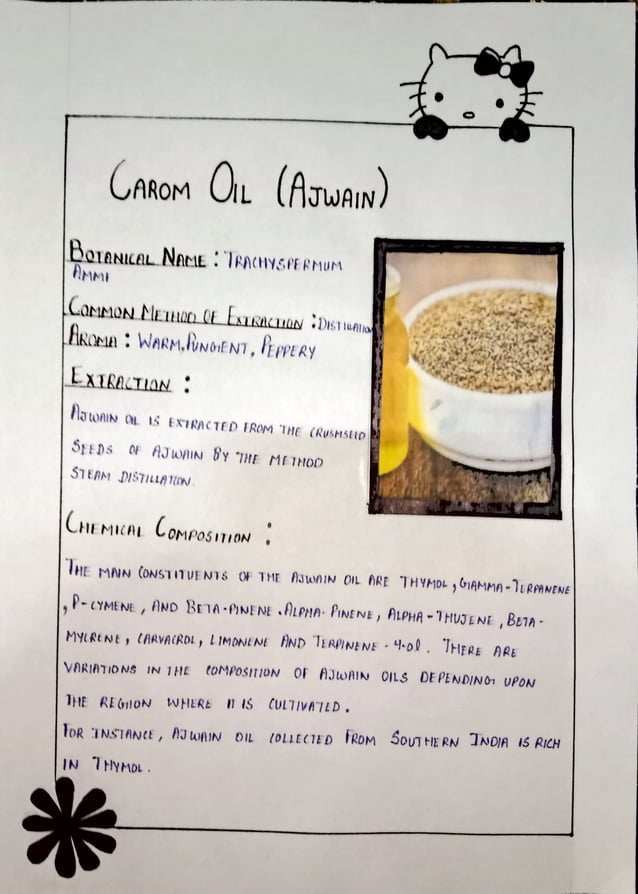 CAROM OIL (AJWAIN)
BOTANICAL NAME : TRACHYSPERMUM
AMMI
COMMON METHOD OF EXTRACTION : DISTILLATION
AROMA : WARM, PUNGIENT, PEPPERY
EXTRACTION :
AJWAIN OIL IS EXTRACTED FROM THE CRUSHSEID
SEEDS OF AJWAIN BY THE METHOD
STEAM DISTILLATION.
CHEMICAL COMPOSITION :
THE MAIN CONSTITUENTS OF THE AJWAIN OIL ARE THYMOL, GAMMA-TERPANENE
, P-CYMENE, AND BETA-PINENE. ALPHA-PINENE, ALPHA-THUJENE, BETA-
MYCRENE, CARVACROL, LIMONENE AND TERPINENE-4-ol. THERE ARE
VARIATIONS IN THE COMPOSITION OF AJWAIN OILS DEPENDING UPON
THE REGIION WHERE IT IS CULTIVATED.
FOR INSTANCE, AJWAIN OIL COLLECTED FROM SOUTHERN INDIA IS RICH
IN THYMOL.